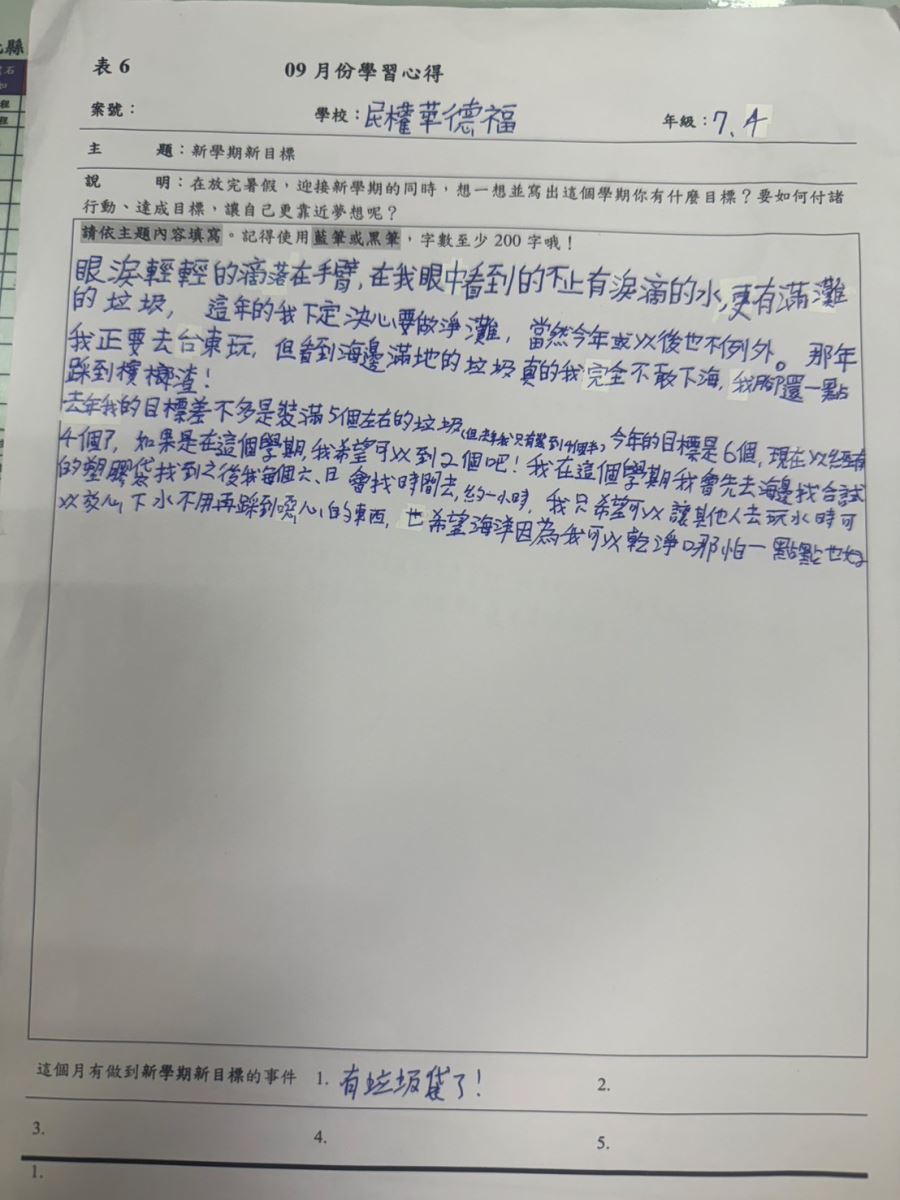 表 6 09 月份學習心得
案號： 學校：民權華德福 年級：7、4
主 題：新學期新目標
說 明：在放完暑假，迎接新學期的同時，想一想並寫出這個學期你有什麼目標？要如何付諸
行動、達成目標，讓自己更靠近夢想呢？
請依主題內容填寫。記得使用藍筆或黑筆，字數至少 200 字哦！
眼淚輕輕的滴落在手臂，在我眼中看到的不止有淚滴的水，更有滿灘
的垃圾，這年的我下定決心要做淨灘，當然今年或以後也不例外。那年
我正要去台東玩，但看到海邊滿地的垃圾真的我完全不敢下海，我腳還一點
踩到檳榔渣！
去年我的目標差不多是裝滿5個左右的垃圾(但去年我只有裝到4個半)，今年的目標是6個，現在以經有
4個了，如果是在這個學期，我希望可以到2個吧！我在這個學期我會先去海邊找合試
的塑膠袋找到之後我每個六、日會找時間去，約一小時，我只希望可以讓其他人去玩水時可
以放心下水不用再踩到噁心的東西，也希望海洋因為我可以乾淨哪怕一點點也好
這個月有做到新學期新目標的事件 1. 有垃圾袋了！ 2.
3. 4. 5.
1.